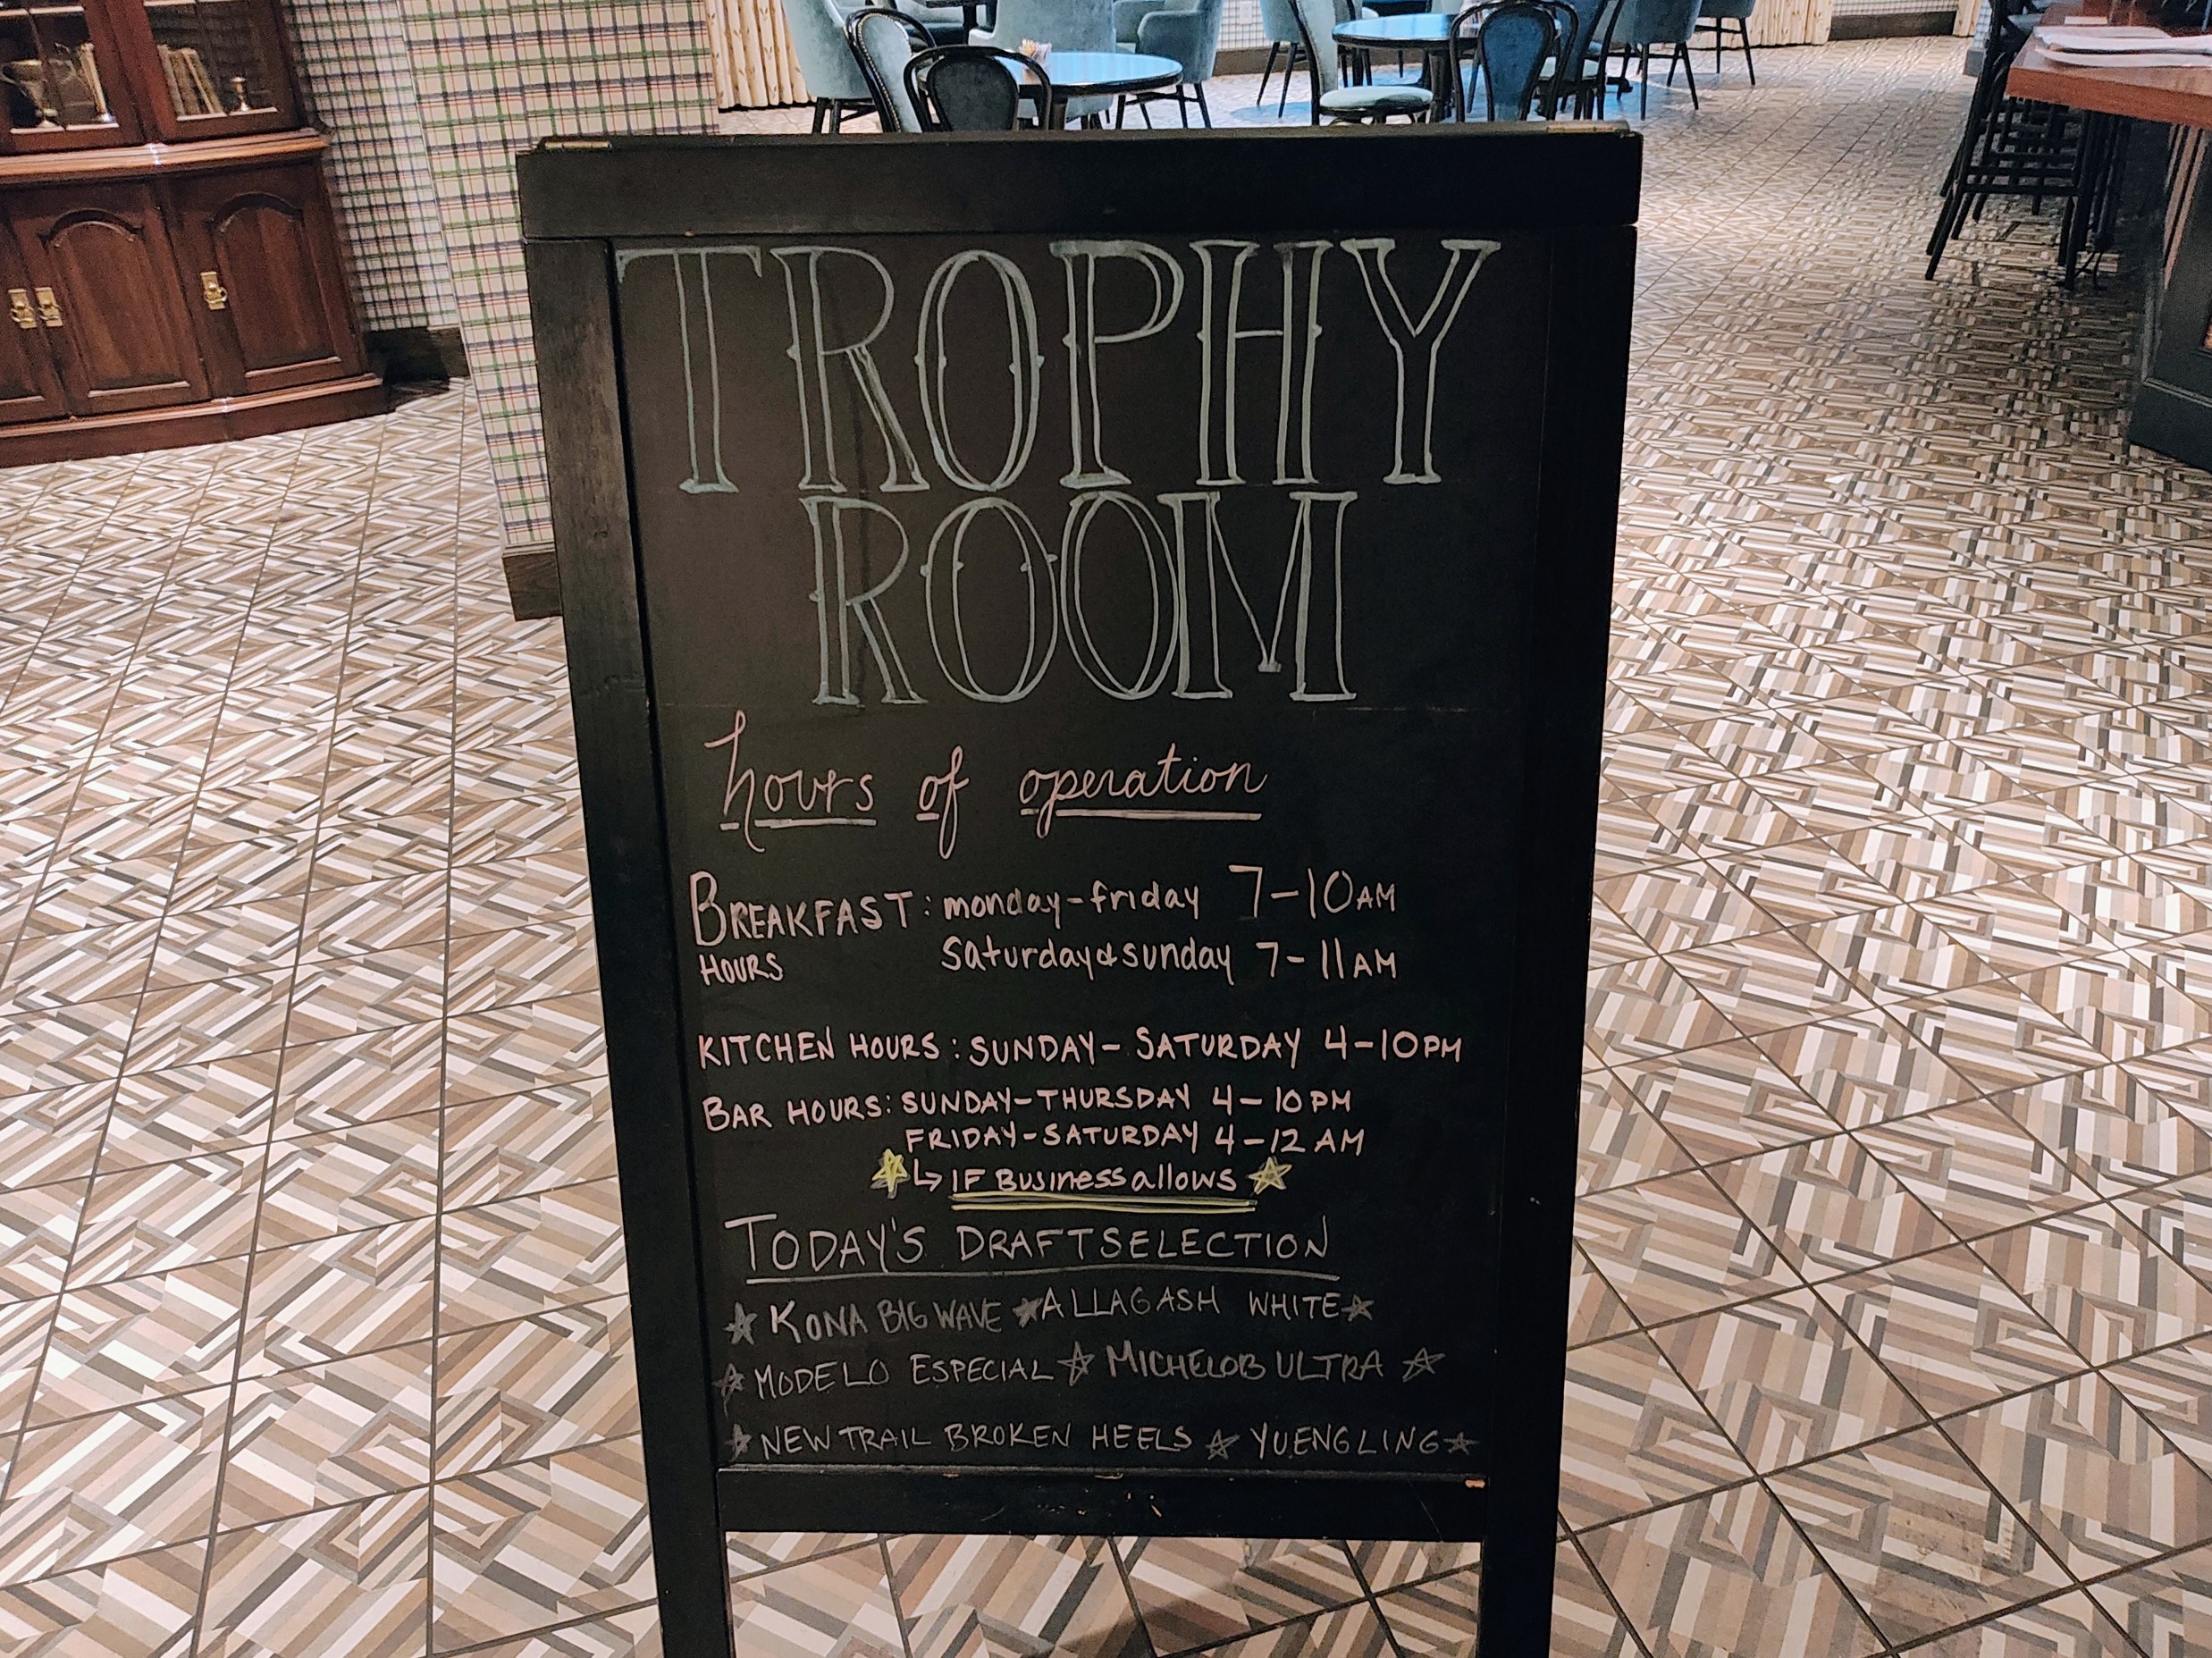 TROPHY
ROOM
hours of operation
BREAKFAST: monday-friday 7-10AM
HOURS saturday & sunday 7-11AM
KITCHEN HOURS: SUNDAY-SATURDAY 4-10PM
BAR HOURS: SUNDAY-THURSDAY 4-10PM
FRIDAY-SATURDAY 4-12AM
☆ ↳ IF Business allows ☆
TODAY'S DRAFT SELECTION
☆ KONA BIG WAVE ★ ALLAGASH WHITE ☆
☆ MODELO ESPECIAL ☆ MICHELOB ULTRA ☆
☆ NEW TRAIL BROKEN HEELS ☆ YUENGLING ☆